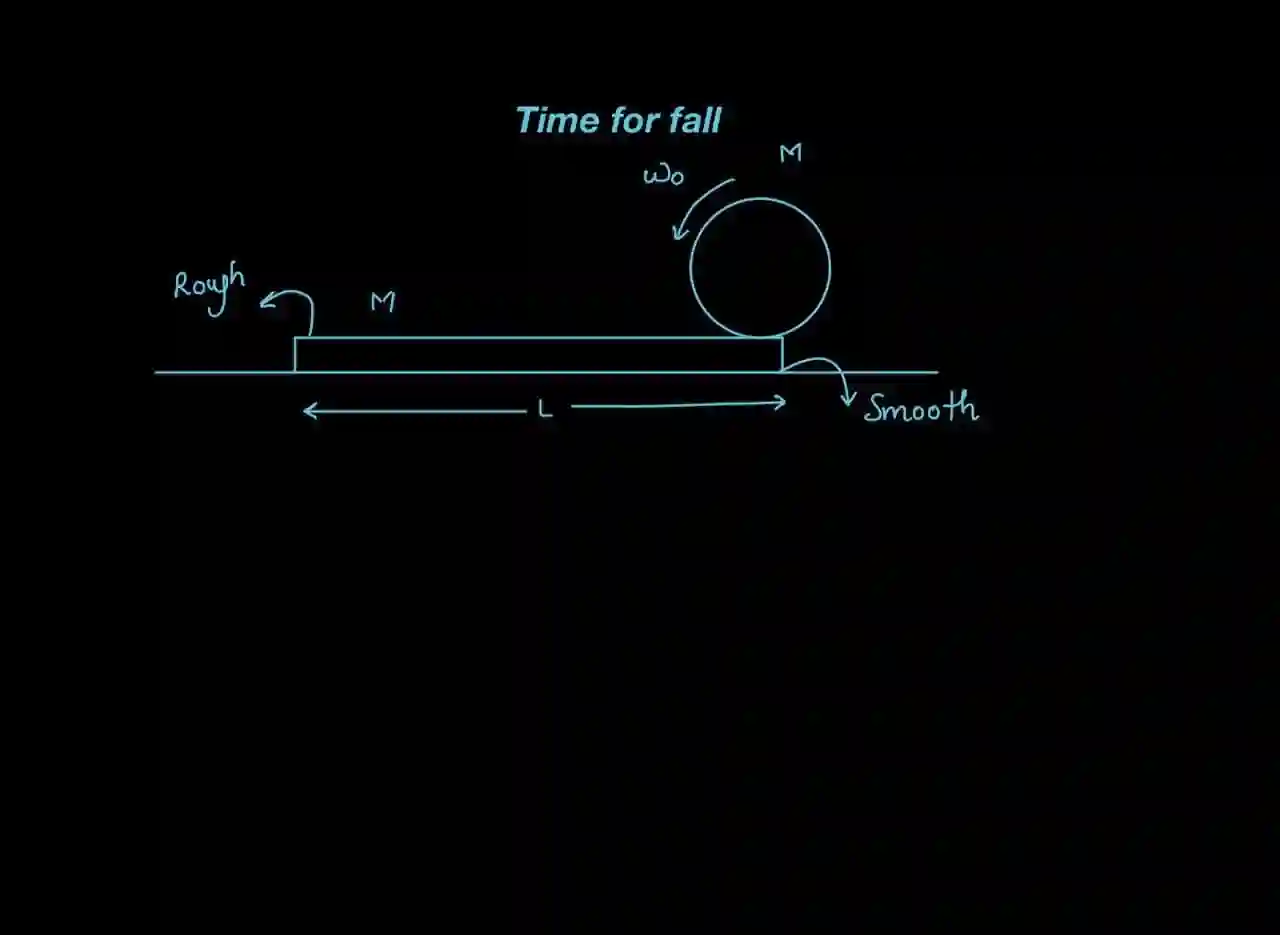 Time for fall
M
ωo
Rough
M
L
Smooth